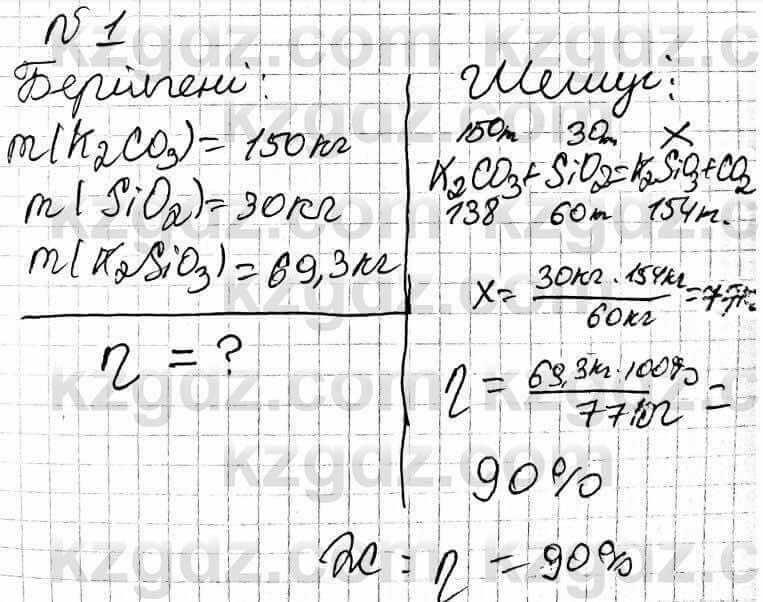 № 1
Берілгені:
m(K₂CO₃) = 150кг
m(SiO₂) = 30кг
m(K₂SiO₃) = 69,3кг
η = ?
Шешуі:
150т 30т X
K₂CO₃ + SiO₂ = K₂SiO₃ + CO₂
138 60т 154т.
X = 30кг · 154кг / 60кг = 77
η = 69,3кг · 100% / 77кг =
90%
Ж: η = 90%
kzgdz.com kzgdz.com
kzgdz.com
kzgdz.com kzgdz.com
kzgdz.com
kzgdz.com kzgdz.com
kzgdz.com
kzgdz.com kzgdz.com